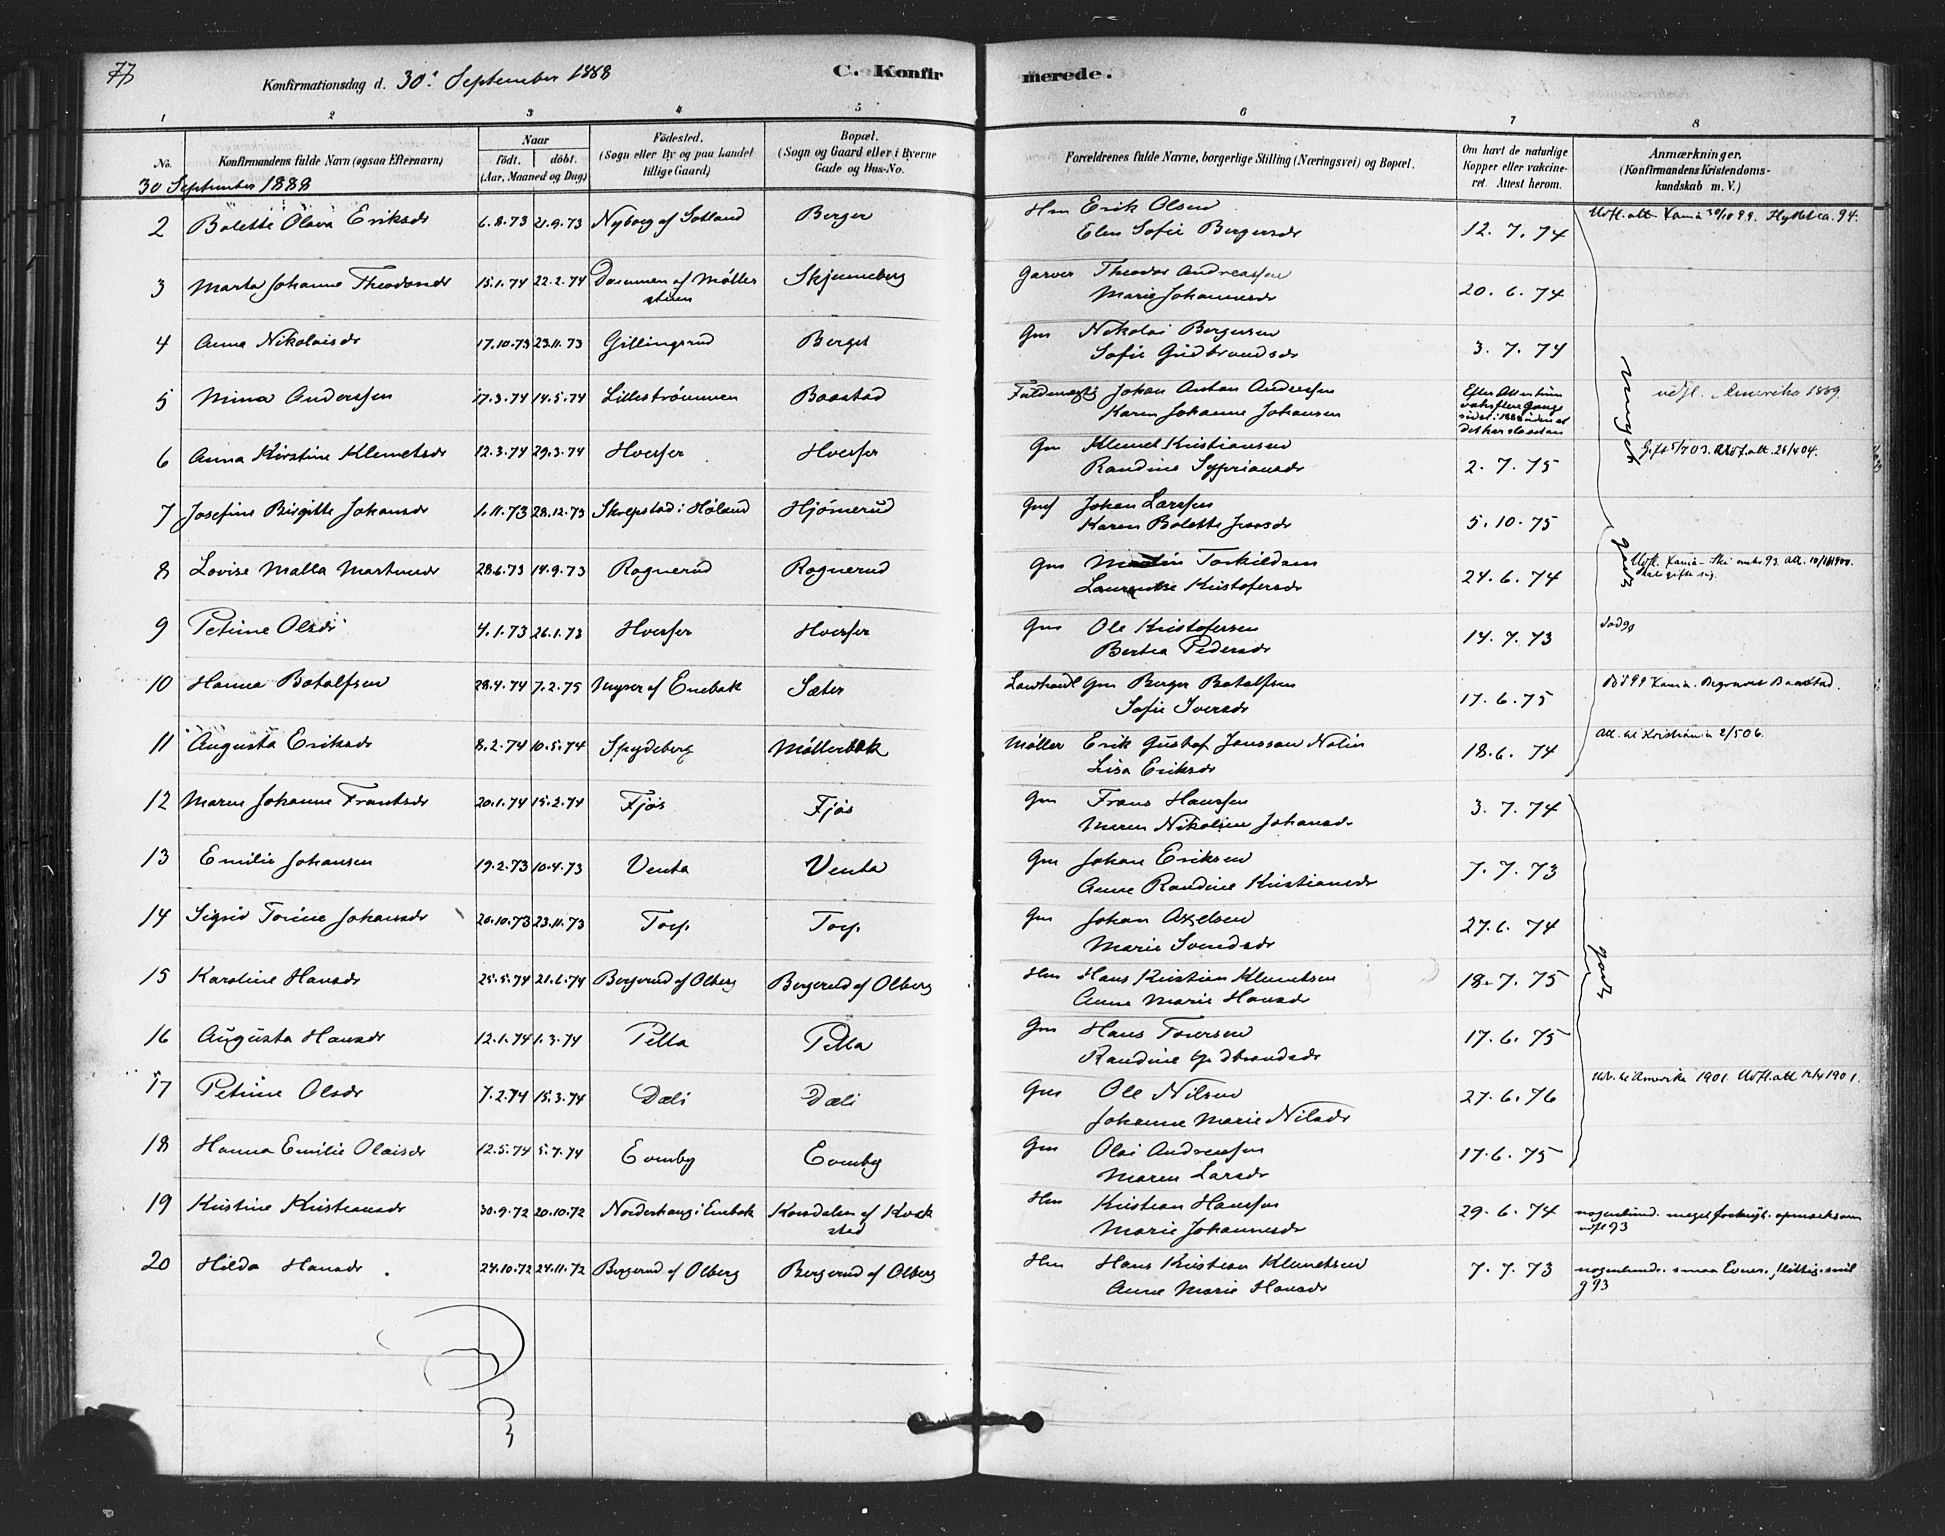 77
Konfirmationsdag d. 30' September 1888
C. Konfirmerede.
1 2 3 4 5 6 7 8
No.
Konfirmandens fulde Navn (ogsaa Efternavn)
Naar
födt. döbt.
(Aar, Maaned og Dag)
Födested.
(Sogn eller By og paa Landet tillige Gaard)
Bopæl.
(Sogn og Gaard eller i Byerne Gade og Hus-No.
Forældrenes fulde Navne, borgerlige Stilling (Næringsvei) og Bopæl.
Om havt de naturlige Kopper eller vakcineret Attest herom.
Anmærkninger.
(Konfirmandens Kristendomskundskab m. V.)
30 September 1888
2 Bolette Olava Eriksdr 6.8.73 21.9.73 Nyborg af Sotland Berger Hm Erik Olsen 12.7.74
Elen Sofie Bergersdr
3 Marta Johanne Theodorsdr 15.1.74 22.2.74 af Møllerstuen Skjenneberg Garver Theodor Andreassen 20.6.74
Marie Johannesdr
4 Anna Nikolaisdr 17.10.73 23.11.73 Gillingsrud Berger Gm Nikolai Bergersen 3.7.74
Sofie Gudbrandsdr
5 Mina Anderssen 17.3.74 14.5.74 Lillestrømmen Baastad Fuldmægtig Johan Anton Anderssen udfl. Amerika 1889.
Karen Johanne Johansen
6 Anna Kirstine Klemetsdr 12.3.74 29.3.74 Hverfer Hverfer Gm Klemet Kristiansen 2.7.75
Randine Syprriansdr
7 Josefine Birgitte Johansdr 1.11.73 28.12.73 Skolpstad i Høland Hjømerud Gmf Johan Larssen 5.10.75
Karen Bolette
8 Lovise Malla Martinsdr 28.6.73 14.9.73 Rognerud Rognerud Gm Martin Torkildsen 24.6.74
Laurentse Kristofersdr
9 Petrine Olsdr 4.1.73 26.1.73 Hverfer Hverfer Gm Ole Kristofersen 14.7.73
Bertea Pedersdr
10 Hanna Botolfsen 28.4.74 7.2.75 Myrer af Enebak Sæter Landhandl Gm Berger Botolfsen 17.6.75
Sofie Iversdr
11 Augusta Eriksdr 8.2.74 10.5.74 Spydeberg Møllerbæk Møller Erik Gustaf Jonsson Nolin 18.6.74 Att. til Kristiania 2/5 06.
Lisa Eriksdr
12 Maren Johanne Frantsdr 20.1.74 15.2.74 Fjøs Fjøs Gm Frans Hanssen 3.7.74
Maren Nikoline Johansdr
13 Emilie Johansen 19.2.73 10.4.73 Venta Venta Gm Johan Eriksen 7.7.73
Anne Randine Kristiansdr
14 Sigrid Torine Johansdr 20.10.73 23.11.73 Torp. Torp. Gm Johan Axelsen 27.6.74
Marie Svendsdr
15 Karoline Hansdr 25.5.74 21.6.74 Bergerud af Olberg Bergerud af Olberg Hm Hans Kristian Klemetsen 18.7.75
Anne Marie Hansdr
16 Augusta Hansdr 12.1.74 1.3.74 Pella Pella Gm Hans Toversen 17.6.75
Randine Gudbrandsdr
17 Petrine Olsdr 7.2.74 15.3.74 Dæli Dæli Gm Ole Nilsen 27.6.76 Udv. til Amerika 1901. Udfl.att 12/4 1901.
Johanne Marie Nilsdr
18 Hanna Emilie Olaisdr 12.5.74 5.7.74 Eomby Eomby Gm Olai Andreassen 17.6.75
Maren Larsdr
19 Kristine Kristiansdr 30.9.72 20.10.72 Norderhaug i Enebak Korsdalen af Kvakstad Hm Kristian Hanssen 29.6.74
Marie Johannesdr
20 Hilda Hansdr. 24.10.72 24.11.72 Bergerud af Olberg Bergerud af Olberg Hm Hans Kristian Klemetsen 7.7.73 nogenlunde. smaa Evner. flittig. snil
g 93
Anne Marie Hansdr